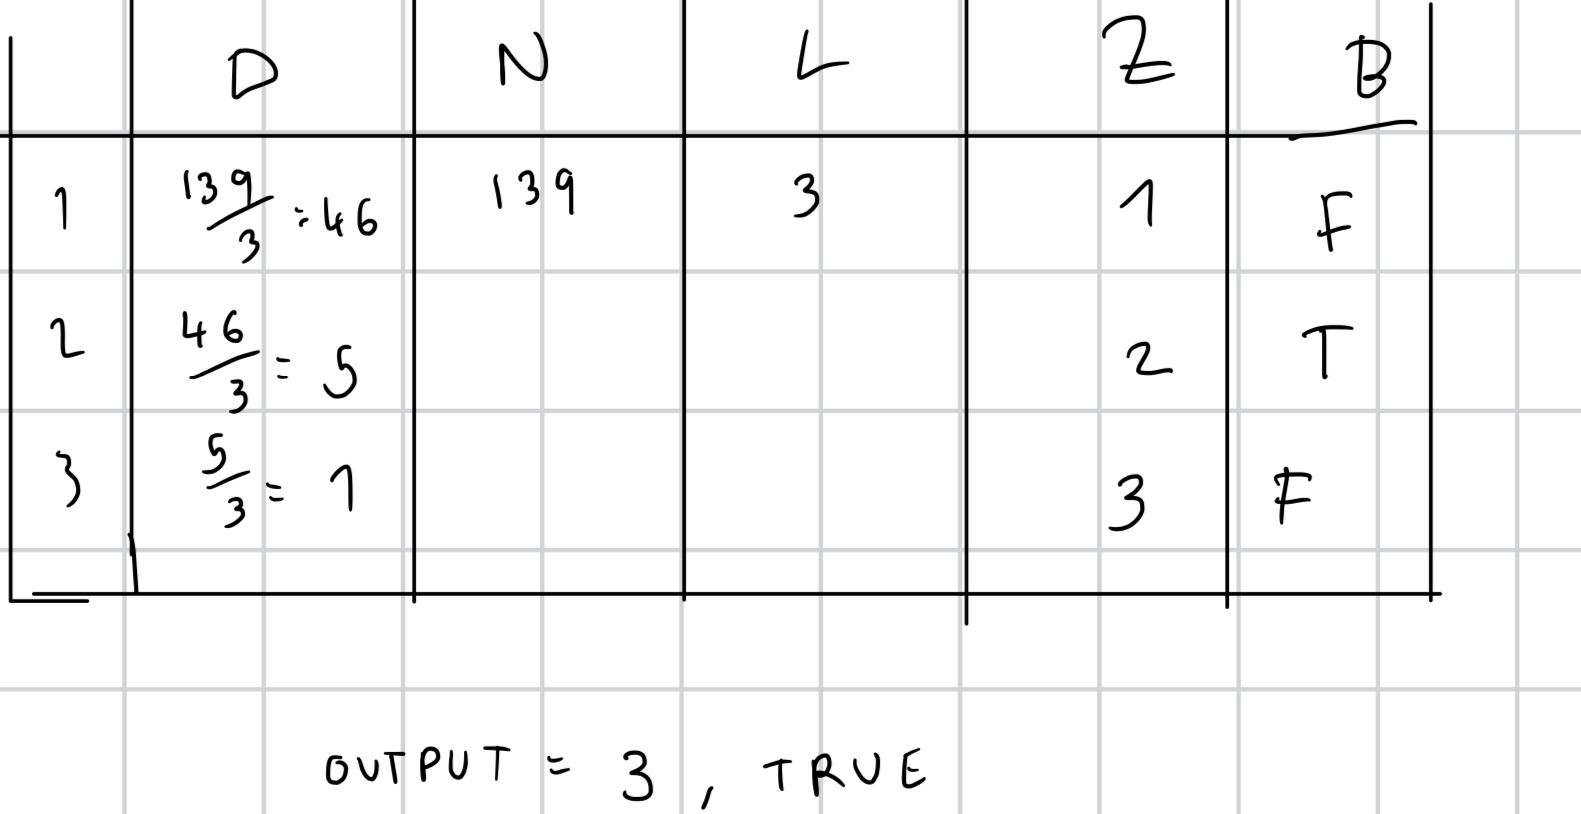 D N L Z B
1 139/3 = 46 139 3 1 F
2 46/3 = 5 2 T
3 5/3 = 1 3 F
OUTPUT = 3, TRUE